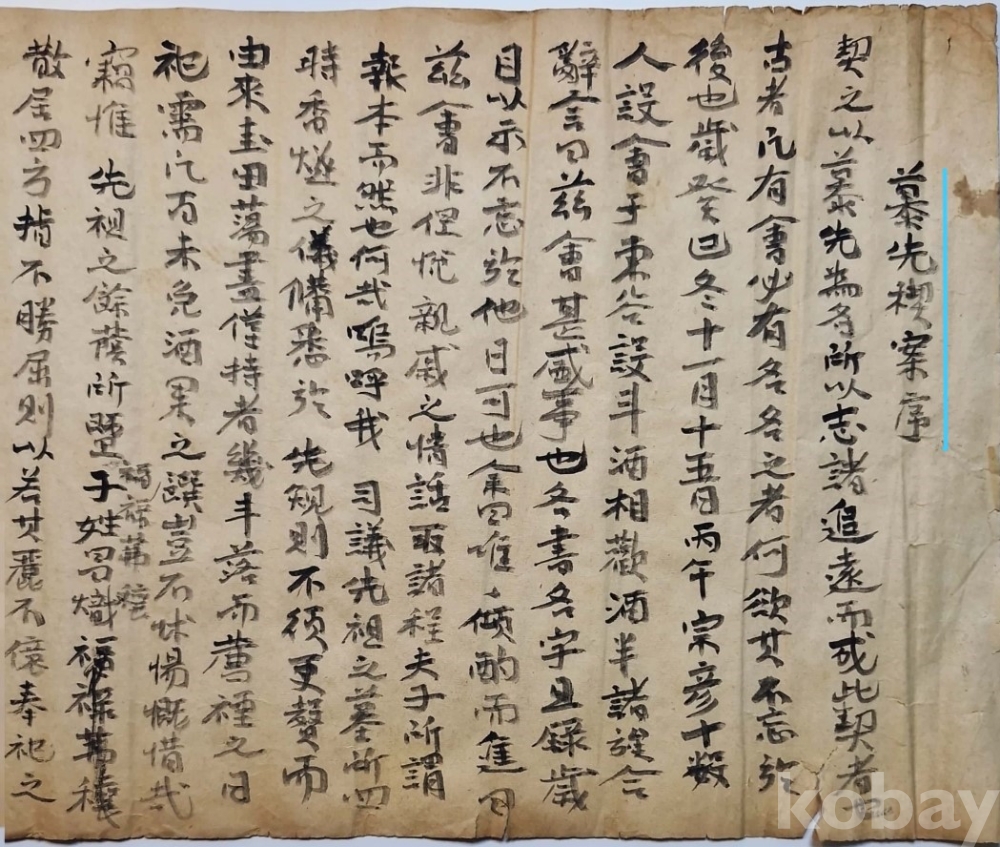 慕先稧案序
契之以慕先為名所以志諸追遠而成此契者也
古者凡有會必有名名之者何欲其不忘於
後也歲癸巳冬十一月十五日丙午宗彦十數
人設會于東谷設斗酒相歡酒半諸族合
辭言曰玆會甚盛事也各書名字且錄歲
月以示不忘於他日可也余曰唯〻傾酌而進曰
玆會非但悅親戚之情話取諸程夫子所謂
報本而然也何哉嗚呼我 司議先祖之墓所四
時香燧之儀備悉於 先規則不須更贅而
由來圭田蕩盡僅持者幾半落而薦禋之日
祀需凡百未免酒果之饌豈不怵惕慨惜哉
竊惟 先祖之餘蔭所曁子姓昌熾福祿舊穰
福祿萬
散居四方指不勝屈則以若其麗不億奉祀之
kobay